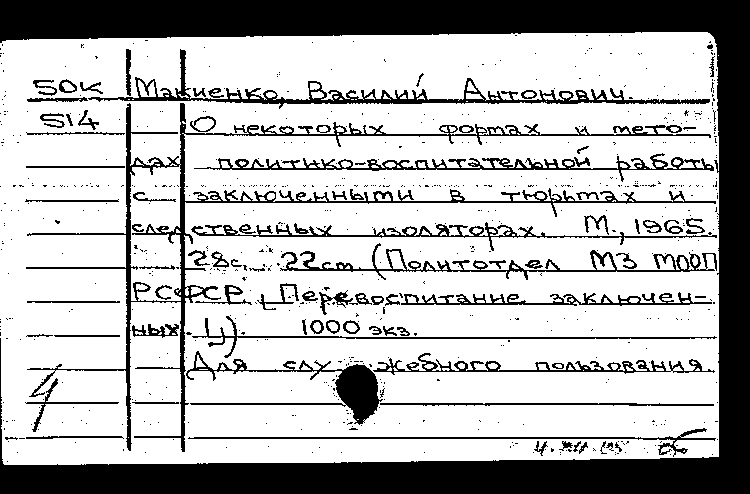 50К Макиенко, Василий Антонович.
514 О некоторых формах и мето-
дах политико-воспитательной работы
с заключенными в тюрьмах и
следственных изоляторах. М., 1965.
28с. 22cm. (Политотдел МЗ МООП
РСФСР. Перевоспитание заключен-
ных. Ц). 1000 экз.
Для служебного пользования.
4